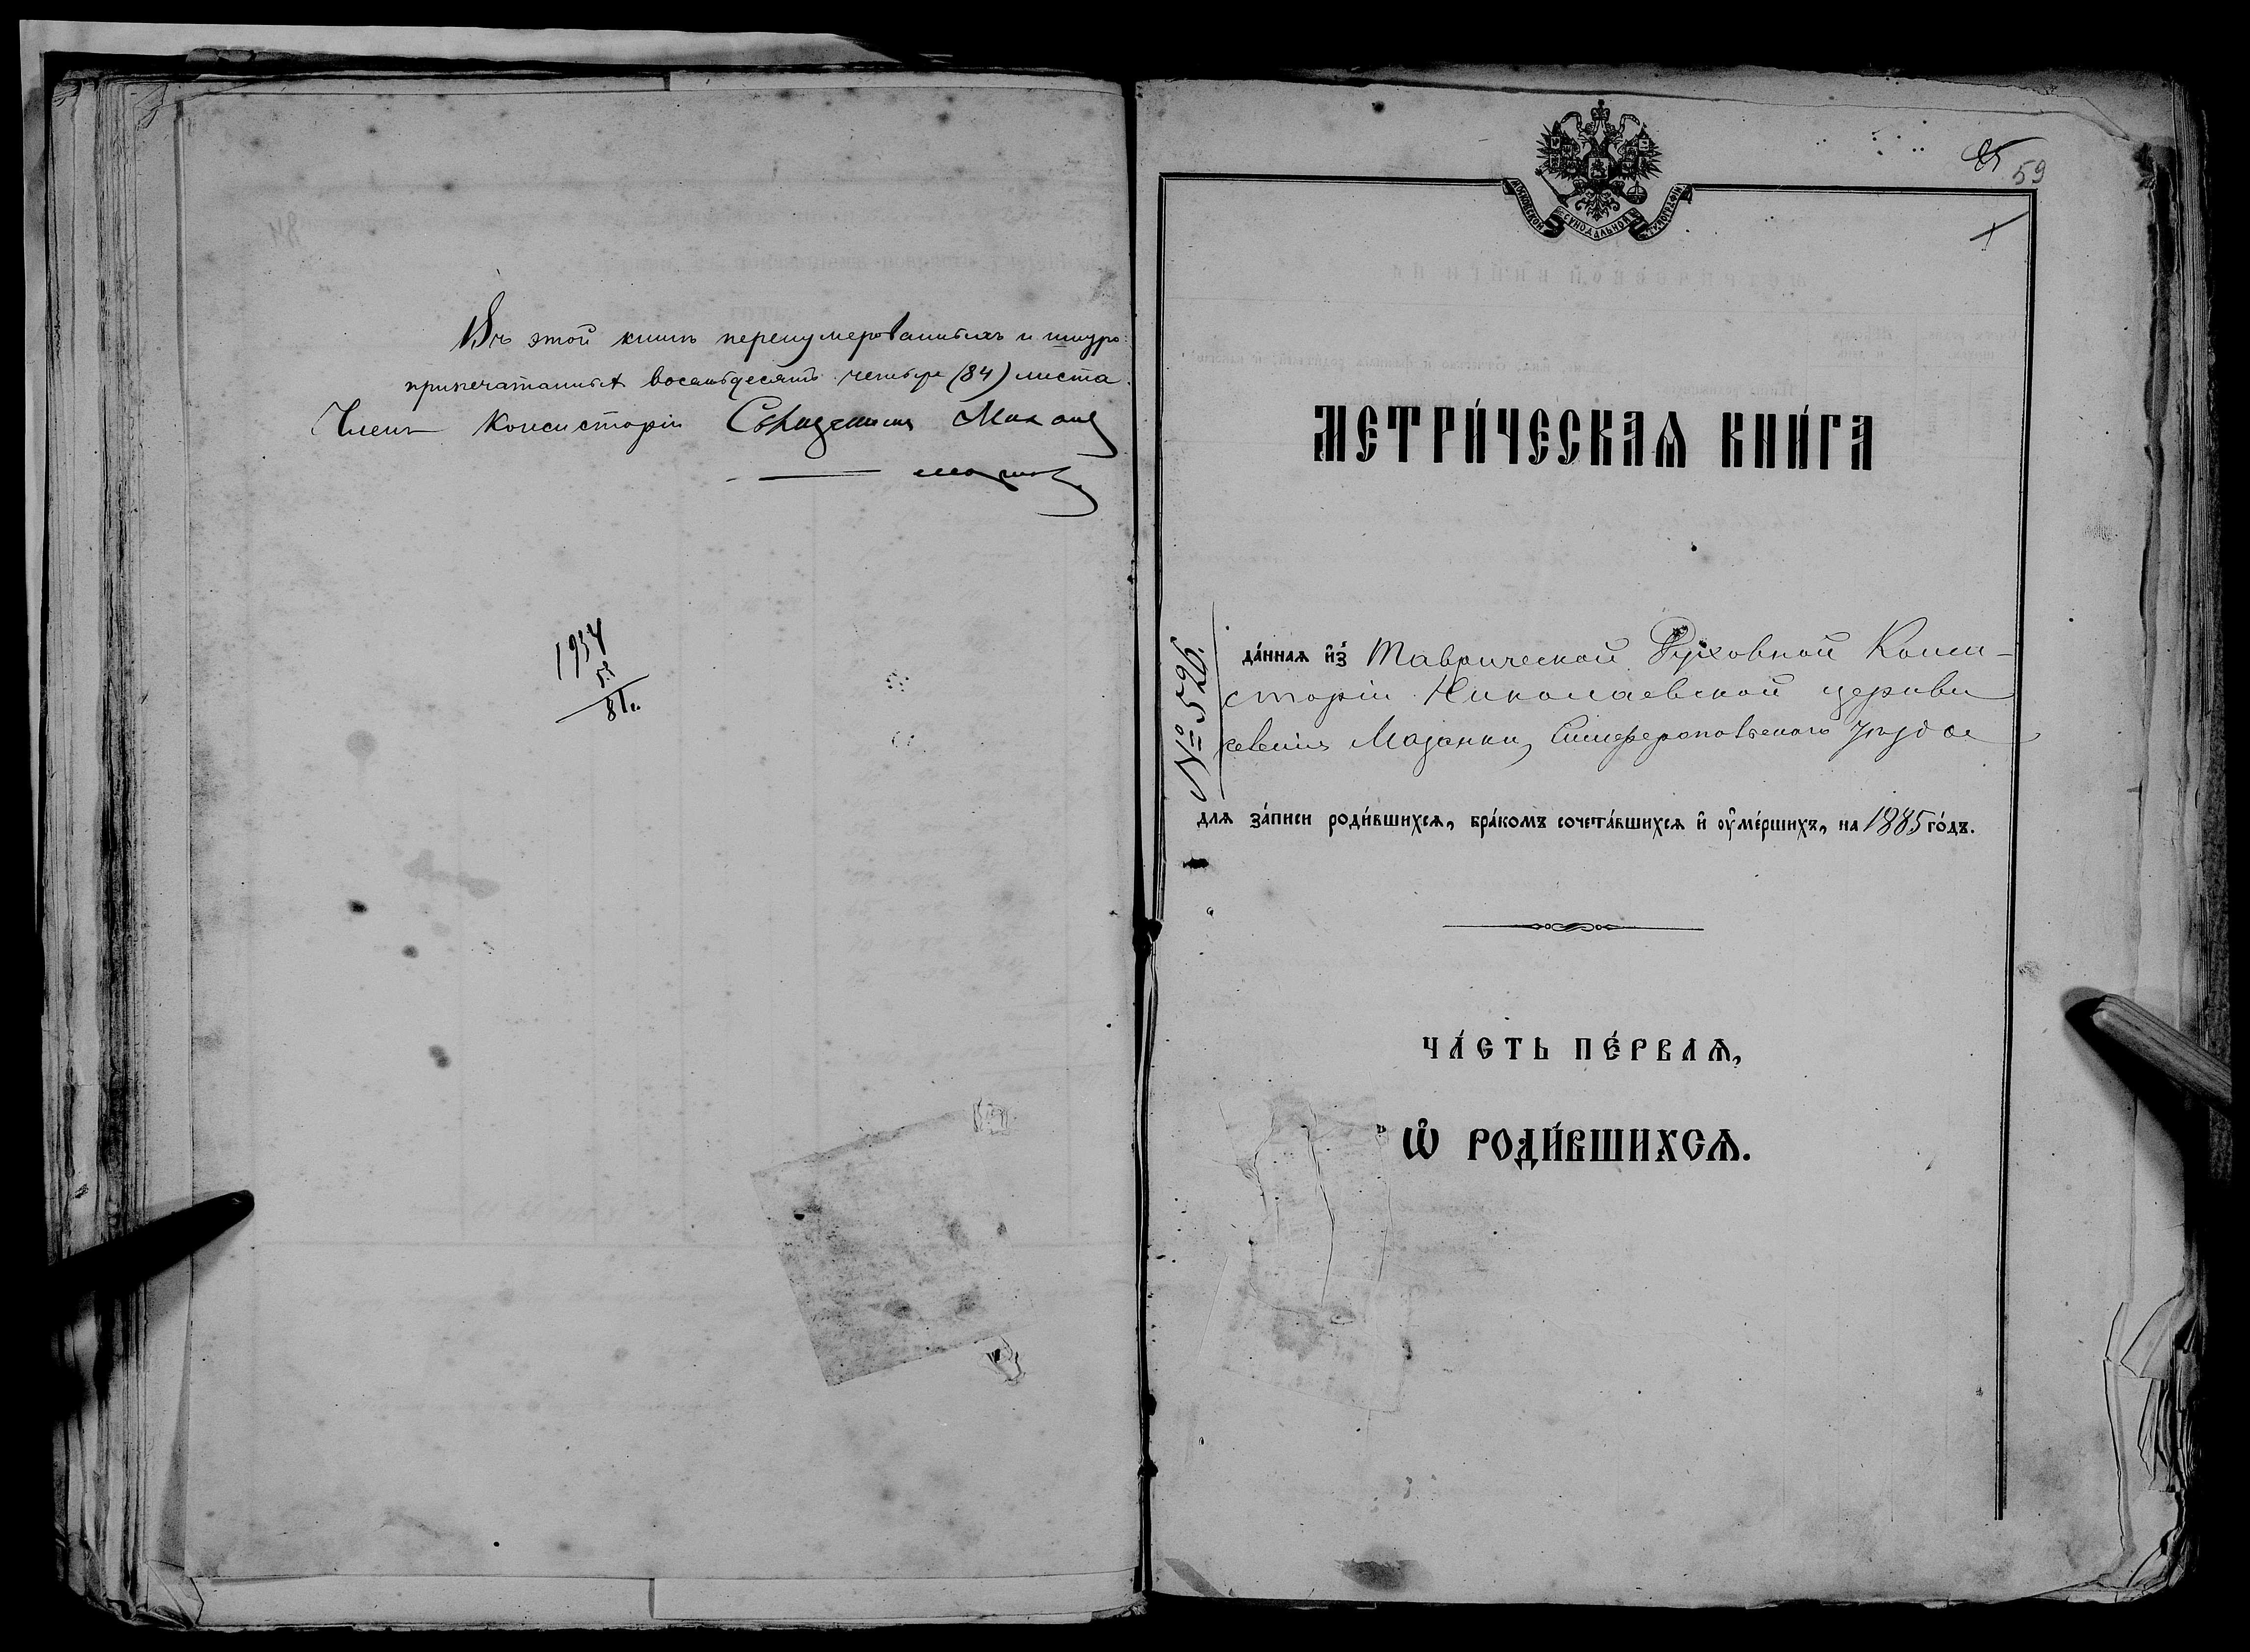 Въ этой книгѣ перенумерованныхъ и шнуро-
припечатанныхъ восемьдесятъ четыре (84) листа.
Членъ Консисторіи Священникъ
1934
5
81
85 59
МОСКОВСКОЙ СѴНОДАЛЬНОЙ ТИПОГРАФІИ
МЕТРИ́ЧЕСКАѦ КНИ́ГА
№ 526.
да́ннаѧ и҆з̾ Таврической Духовной Конси-
сторіи Николаевской церкви
селенія Мазанки, Симферопольского уѣзда
длѧ за́писи роди́вшихсѧ, бра́комъ сочета́вшихсѧ и҆ ᲂу҆ме́ршихъ, на 1885 го́дъ.
ЧА́СТЬ ПЕ́РВАѦ,
Ѽ РОДИ́ВШИХСѦ.